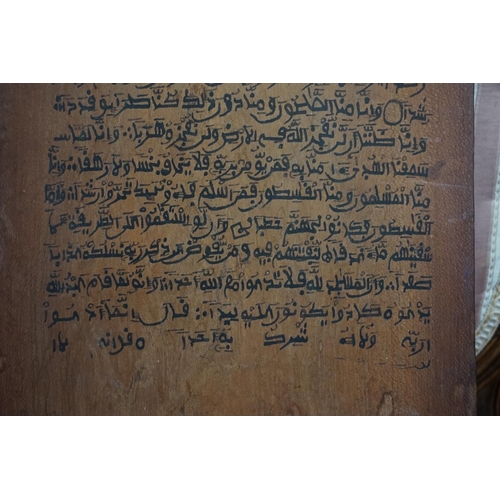 رشدا وانا منا الصلحون ومنا دون ذلك كنا طرائق قددا
وانا ظننا ان لن نعجز الله في الارض ولن نعجزه هربا وانا لما
سمعنا الهدى ءامنا به فمن يومن بربه فلا يخاف بخسا ولا رهقا وانا
منا المسلمون ومنا القسطون فمن اسلم فاولئك تحروا رشدا واما
القسطون فكانوا لجهنم حطبا وان لو استقموا على الطريقة لا
سقينهم ماء غدقا لنفتنهم فيه ومن يعرض عن ذكر ربه نسلكه عذابا
صعدا وان المسجد لله فلا تدعوا مع الله احدا وانه لما قام عبد الله
يدعوه كادوا يكونون عليه لبدا قال انما ادعوا
ربي ولا اشرك به احدا قل اني لا